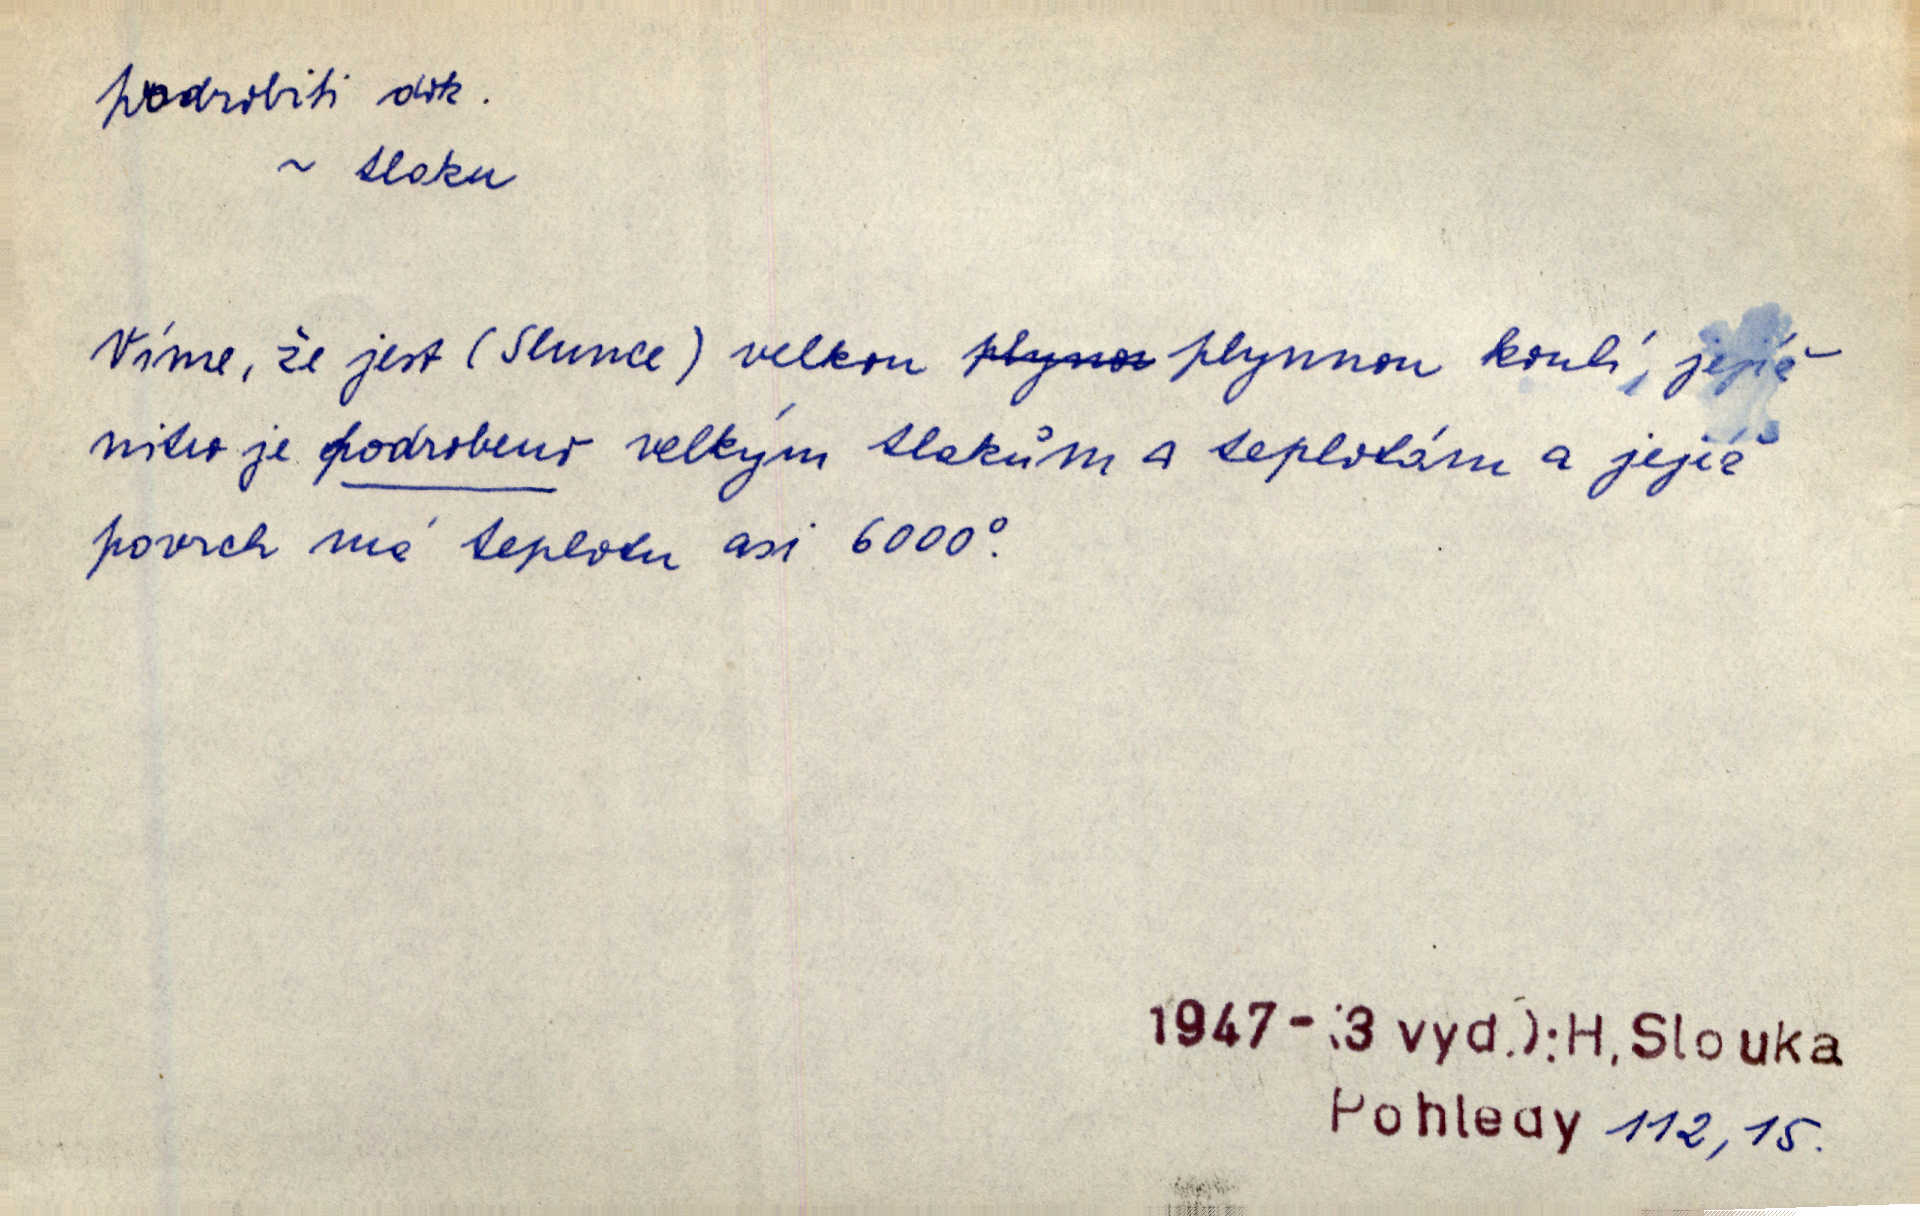 podrobiti dok.
~ tlaku
Víme, že jest (Slunce) velkou plyno plynnou koulí, jejíž
nitro je podrobeno velkým tlakům a teplotám a jejíž
povrch má teplotu asi 6000°.
1947-(3 vyd.):H.Slouka
Pohledy 112,15.